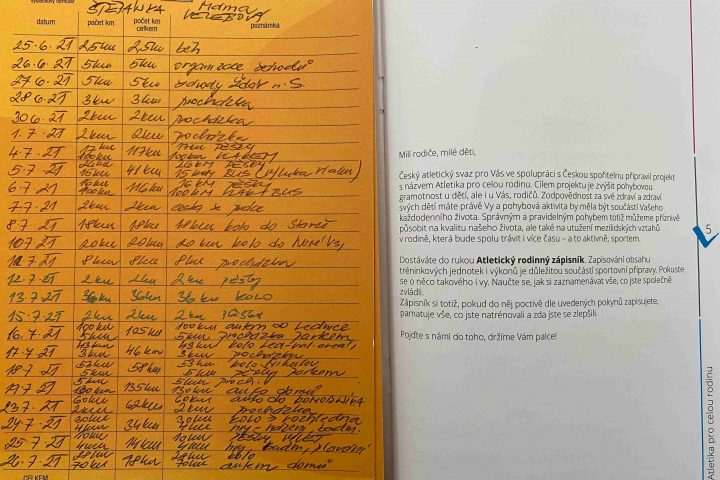 ŠTĚPÁNKA MAMA
datum počet km počet km celkem poznámka
25.6.21 2,5km 2,5km běh
26.6.21 5km 5km organizace závodů
27.6.21 5km 5km závody Žďár n. S.
28.6.21 3km 3km procházka
30.6.21 2km 2km procházka
1.7.21 2km 2km procházka
4.7.21 17km 117km 17km PĚŠKY
100km 100km VLAKEM
5.7.21 26km 41km 26km PĚŠKY
15km 15km BUS
6.7.21 16km 116km 16km PĚŠKY
100km 100km VLAK + BUS
7.7.21 2km 2km
8.7.21 18km 18km 18km kolo do
10.7.21 20km 20km 20km kolo do
11.7.21 8km 8km 8km procházka
12.7.21 2km 2km 2km pěšky
13.7.21 36km 36km 36km KOLO
15.7.21 2km 2km 2km pěšky
16.7.21 100km 105km 100km autem do Lednice
5km 5km procházka parkem
17.7.21 43km 46km 43km kolo Led-val. areál
3km 3km procházka
18.7.21 53km 58km 53km kolo Mikulov
5km 5km pěšky parkem
19.7.21 5km 135km 5km proch.
130km 130km auto domů
23.7.21 60km 62km 60km auto do KOMOROVIKA
2km 2km procházka
24.7.21 30km 34km 30km kolo > rozhledna
4km 4km hry, házení, badm.
25.7.21 10km 14km 10km PĚŠKY VÝLET
4km 4km hry, badm., plavání
26.7.21 28km 28km kolo
70km 70km autem domů
CELKEM
Milí rodiče, milé děti,
Český atletický svaz pro Vás ve spolupráci s Českou spořitelnu připravil projekt
s názvem Atletika pro celou rodinu. Cílem projektu je zvýšit pohybovou
gramotnost u dětí, ale i u Vás, rodičů. Zodpovědnost za své zdraví a zdraví
svých dětí máte právě Vy a pohybová aktivita by měla být součástí Vašeho
každodenního života. Správným a pravidelným pohybem totiž můžeme příznivě
působit na kvalitu našeho života, ale také na utužení mezilidských vztahů
v rodině, která bude spolu trávit i více času – a to aktivně, sportem.
Dostáváte do rukou Atletický rodinný zápisník. Zapisování obsahu
tréninkových jednotek i výkonů je důležitou součástí sportovní přípravy. Pokuste
se o něco takového i vy. Naučte se, jak si zaznamenávat vše, co jste společně
zvládli.
Zápisník si totiž, pokud do něj poctivě dle uvedených pokynů zapisujete,
pamatuje vše, co jste natrénovali a zda jste se zlepšili.
Pojďte s námi do toho, držíme Vám palce!
5
Atletika pro celou rodinu